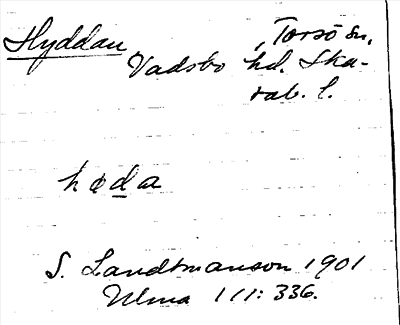 Hyddan, Torsö sn,
Vadsbo hd. Ska-
rab. l.
hɵda
S. Landtmanson 1901
Ulma 111: 336.